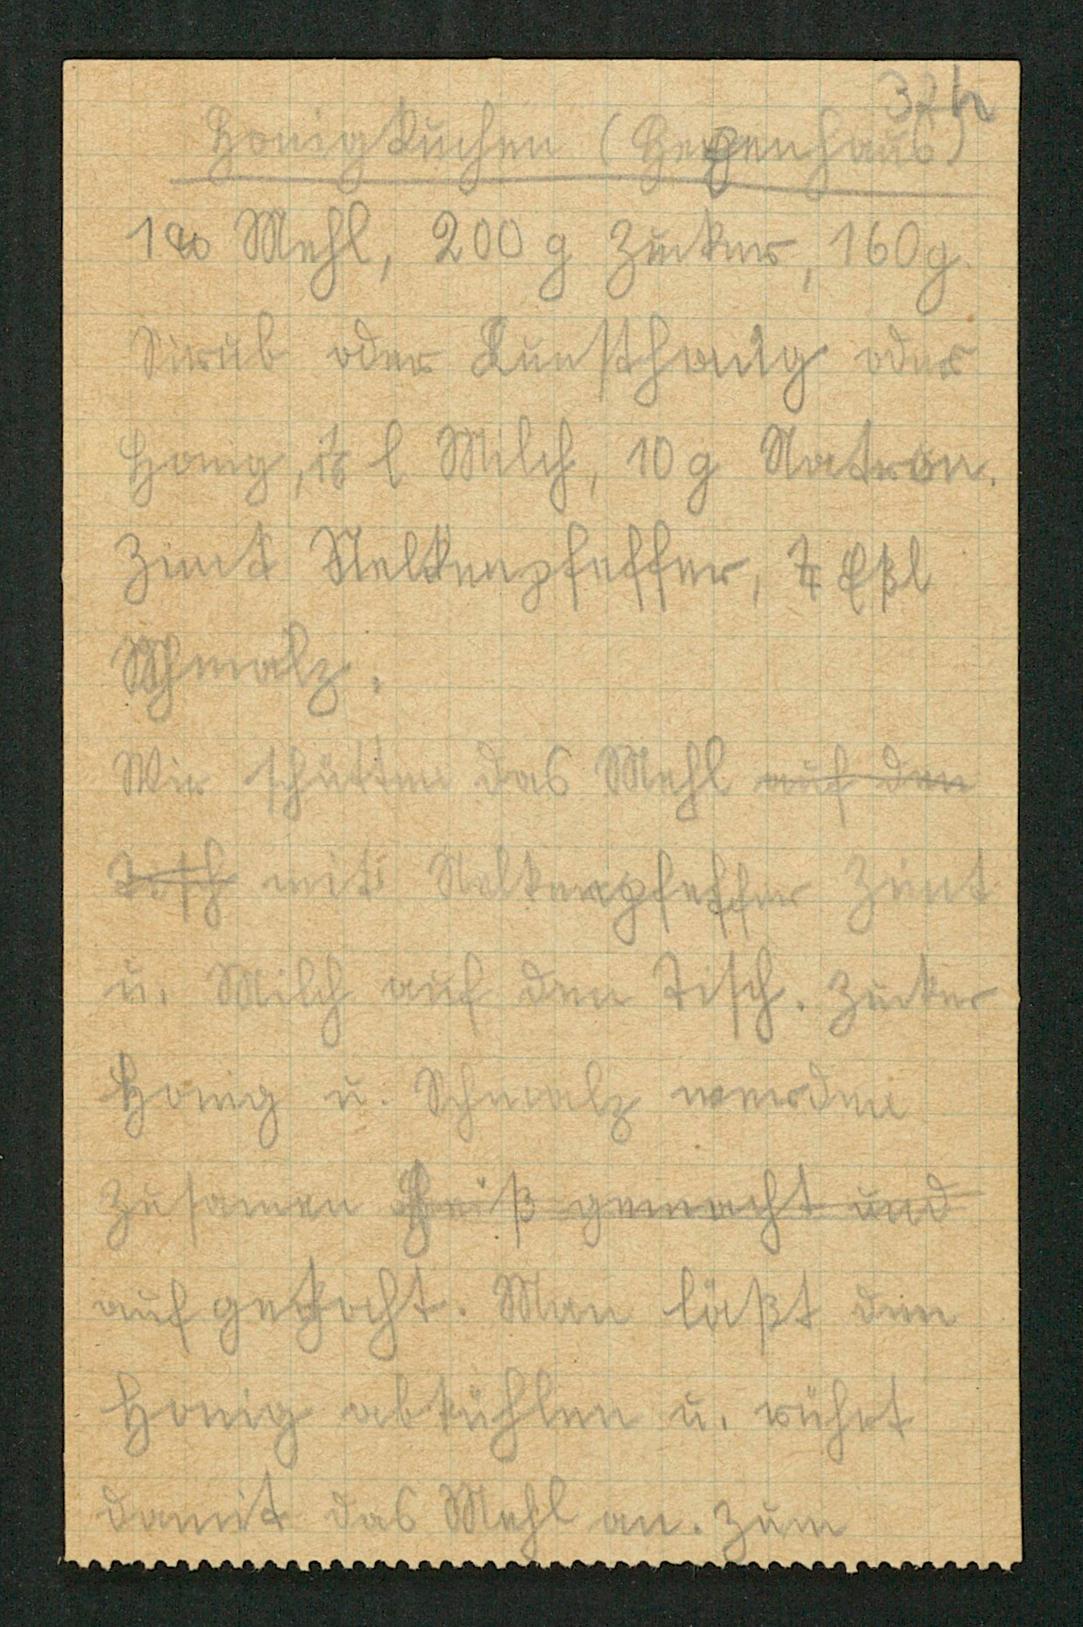 32h
Honigkuchen (Hexenhaus)
1 Mehl, 200 g Zucker, 160 g
Sirub oder Kunsthonig oder
Honig, ⅛ l Milch, 10 g Natron.
Zimt Nelkenpfeffer, Eßl
Schmalz.
Wir schütten das Mehl auf den
Tisch mit Nelkenpfeffer Zimt
u. Milch auf den Tisch. Zucker
Honig u. Schmalz werden
zusamen heiß gemacht und
aufgekocht. Man läßt den
Honig abkühlen u. rührt
damit das Mehl an. Zum